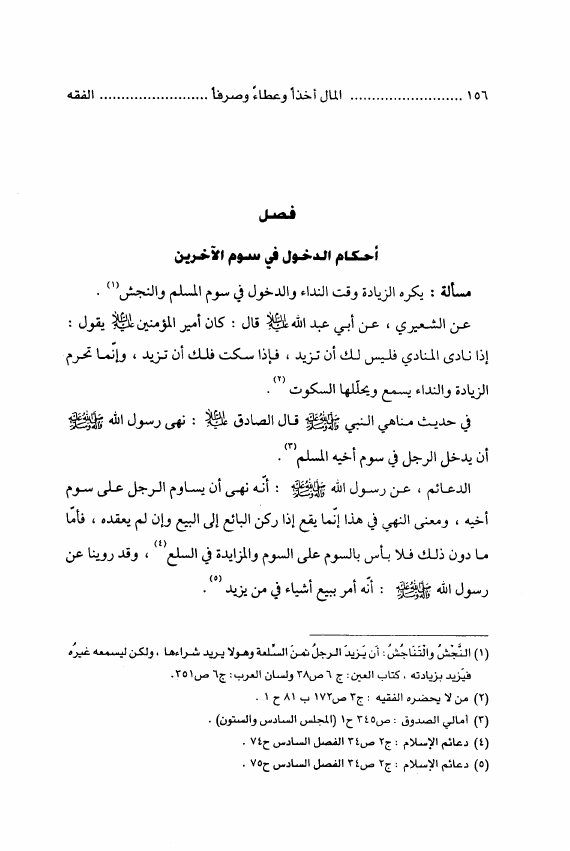 ١٥٦ .......................... المال أخذاً وعطاءً وصرفاً ......................... الفقه
فصل
أحكام الدخول في سوم الآخرين
مسألة : يكره الزيادة وقت النداء والدخول في سوم المسلم والنجش(١) .
عن الشعيري ، عن أبي عبد الله عليه السلام قال : كان أمير المؤمنين عليه السلام يقول :
إذا نادى المنادي فليس لك أن تزيد ، فإذا سكت فلك أن تزيد ، وإنّما تحرم
الزيادة والنداء يسمع ويحلّلها السكوت(٢) .
في حديث مناهي النبي ﷺ قال الصادق عليه السلام : نهى رسول الله ﷺ
أن يدخل الرجل في سوم أخيه المسلم(٣) .
الدعائم ، عن رسول الله ﷺ : أنّه نهى أن يساوم الرجل على سوم
أخيه ، ومعنى النهي في هذا إنّما يقع إذا ركن البائع إلى البيع وإن لم يعقده ، فأمّا
ما دون ذلك فلا بأس بالسوم على السوم والمزايدة في السلع(٤) ، وقد روينا عن
رسول الله ﷺ : أنّه أمر ببيع أشياء في من يزيد(٥) .
(١) النَّجْشُ والتَّناجُشُ: أن يَزيدَ الرجلُ ثمنَ السِّلعة وهو لا يريد شراءها ، ولكن ليسمعه غيرُه
فيَزيد بزيادته ، كتاب العين: ج ٦ ص٣٨ ولسان العرب: ج٦ ص٣٥١.
(٢) من لا يحضره الفقيه : ج٣ ص١٧٢ ب ٨١ ح ١ .
(٣) أمالي الصدوق : ص٣٤٥ ح١ (المجلس السادس والستون) .
(٤) دعائم الإسلام : ج٢ ص٣٤ الفصل السادس ح٧٤ .
(٥) دعائم الإسلام : ج٢ ص٣٤ الفصل السادس ح٧٥ .